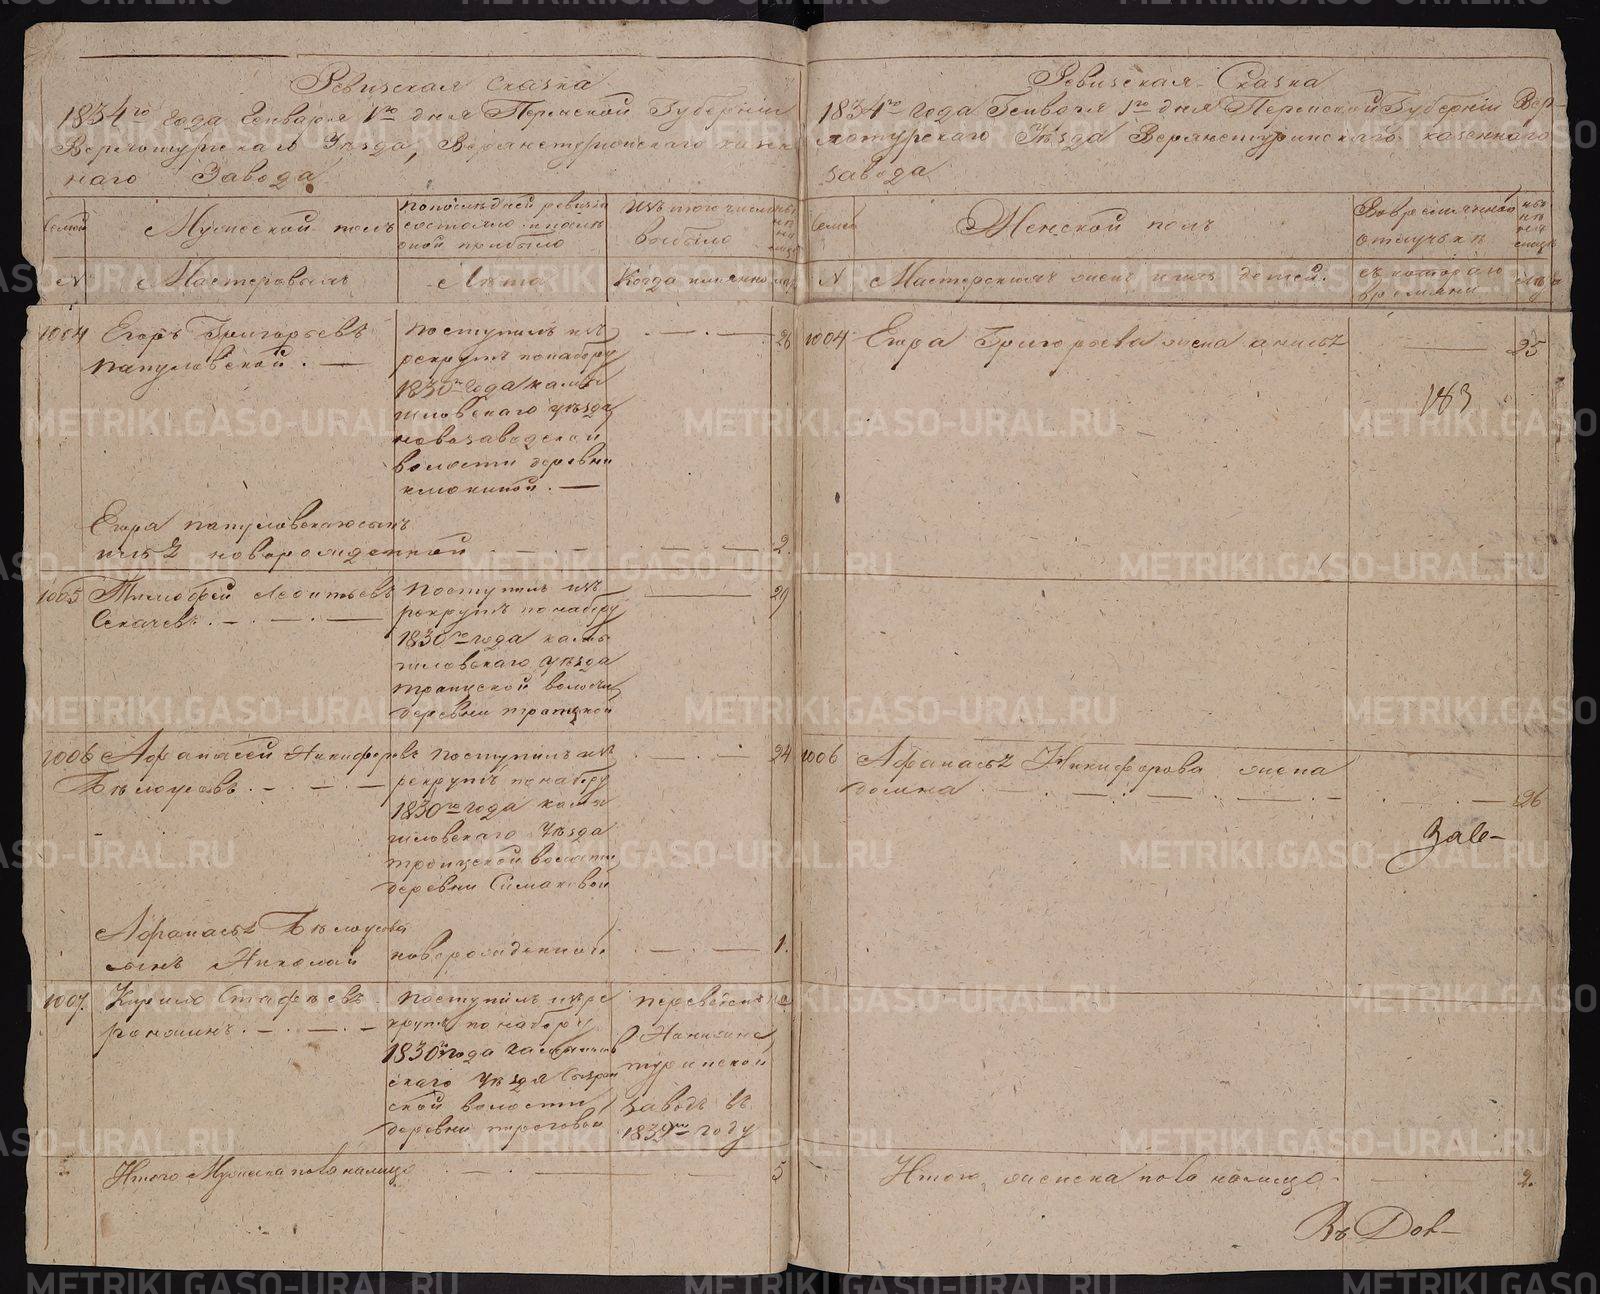 Ревизская Сказка
1834го года Генваря 1го дня Пермской Губернии
Верхотурскаго Уѣзда, Верхнетуринскаго казен
наго Завода
Семей
Мужеской полъ
по послѣдней ревизіи
состояло и послѣ
оной прибыло
Изъ того числа
выбыло
N
Мастеровыхъ
Лѣта
Когда имянно
1004
Егоръ Григорьевъ
Папуловской
поступилъ изъ
рекрутъ по набору
1830го года камы
шловскаго уѣзда
новозаводской
волости деревни
26
Егора Папуловскаго сынъ
новорожденной
2.
1005
Тимофей Леонтьевъ
Секачевъ
поступилъ изъ
рекрутъ по набору
1830го года камы
шловскаго уѣзда
волости
деревни
29
1006
Афанасей Никифоровъ
Бѣлоусовъ
поступилъ изъ
рекрутъ по набору
1830го года камы
шловскаго уѣзда
троицкой волости
деревни Симаковой
24
Афанасья Бѣлоусова
сынъ Николай
новорожденной
1.
1007.
Кирило Стафѣевъ
поступилъ изъ ре
крутъ по набору
1830го года
скаго уѣзда
ской волости
деревни
переведенъ
Нижне
туринской
заводъ въ
году
Итого Мужеска пола на лицо
5
Ревизская Сказка
1834го года Генваря 1го дня Пермской Губерніи Вер-
хотурскаго Уѣзда Верхнетуринскаго казеннаго
завода
Семей
Женской полъ
Во временной
отлучкѣ
N
Мастерскихъ женъ и ихъ детей.
съ котораго
времяни
1004
Егора Григорьева жена Анисья
25
183
1006
Афанасья Никифорова жена
26
Заве-
Итого женска пола на лицо
2.
METRIKI.GASO-URAL.RU